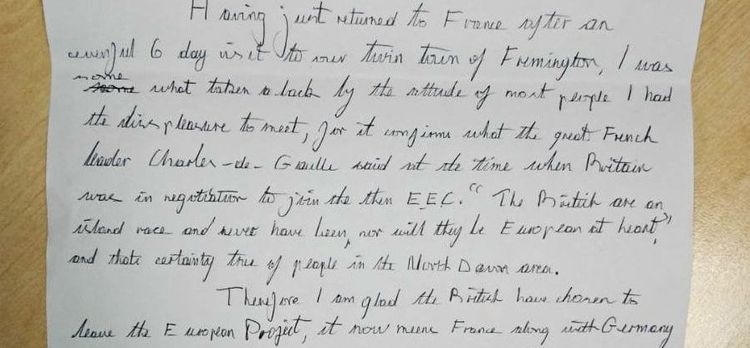 Having just returned to France after an
eventful 6 day visit to our twin town of Fremington, I was
some what taken a back by the attitude of most people I had
the displeasure to meet, for it confirms what the great French
leader Charles-de-Gaulle said at the time when Britain
was in negotiation to join the then EEC. "The British are an
island race and never have been, nor will they be European at heart"
and thats certainty true of people in the North Davon area.
Therefore I am glad the British have chosen to
leave the European Project, it now means France along with Germany